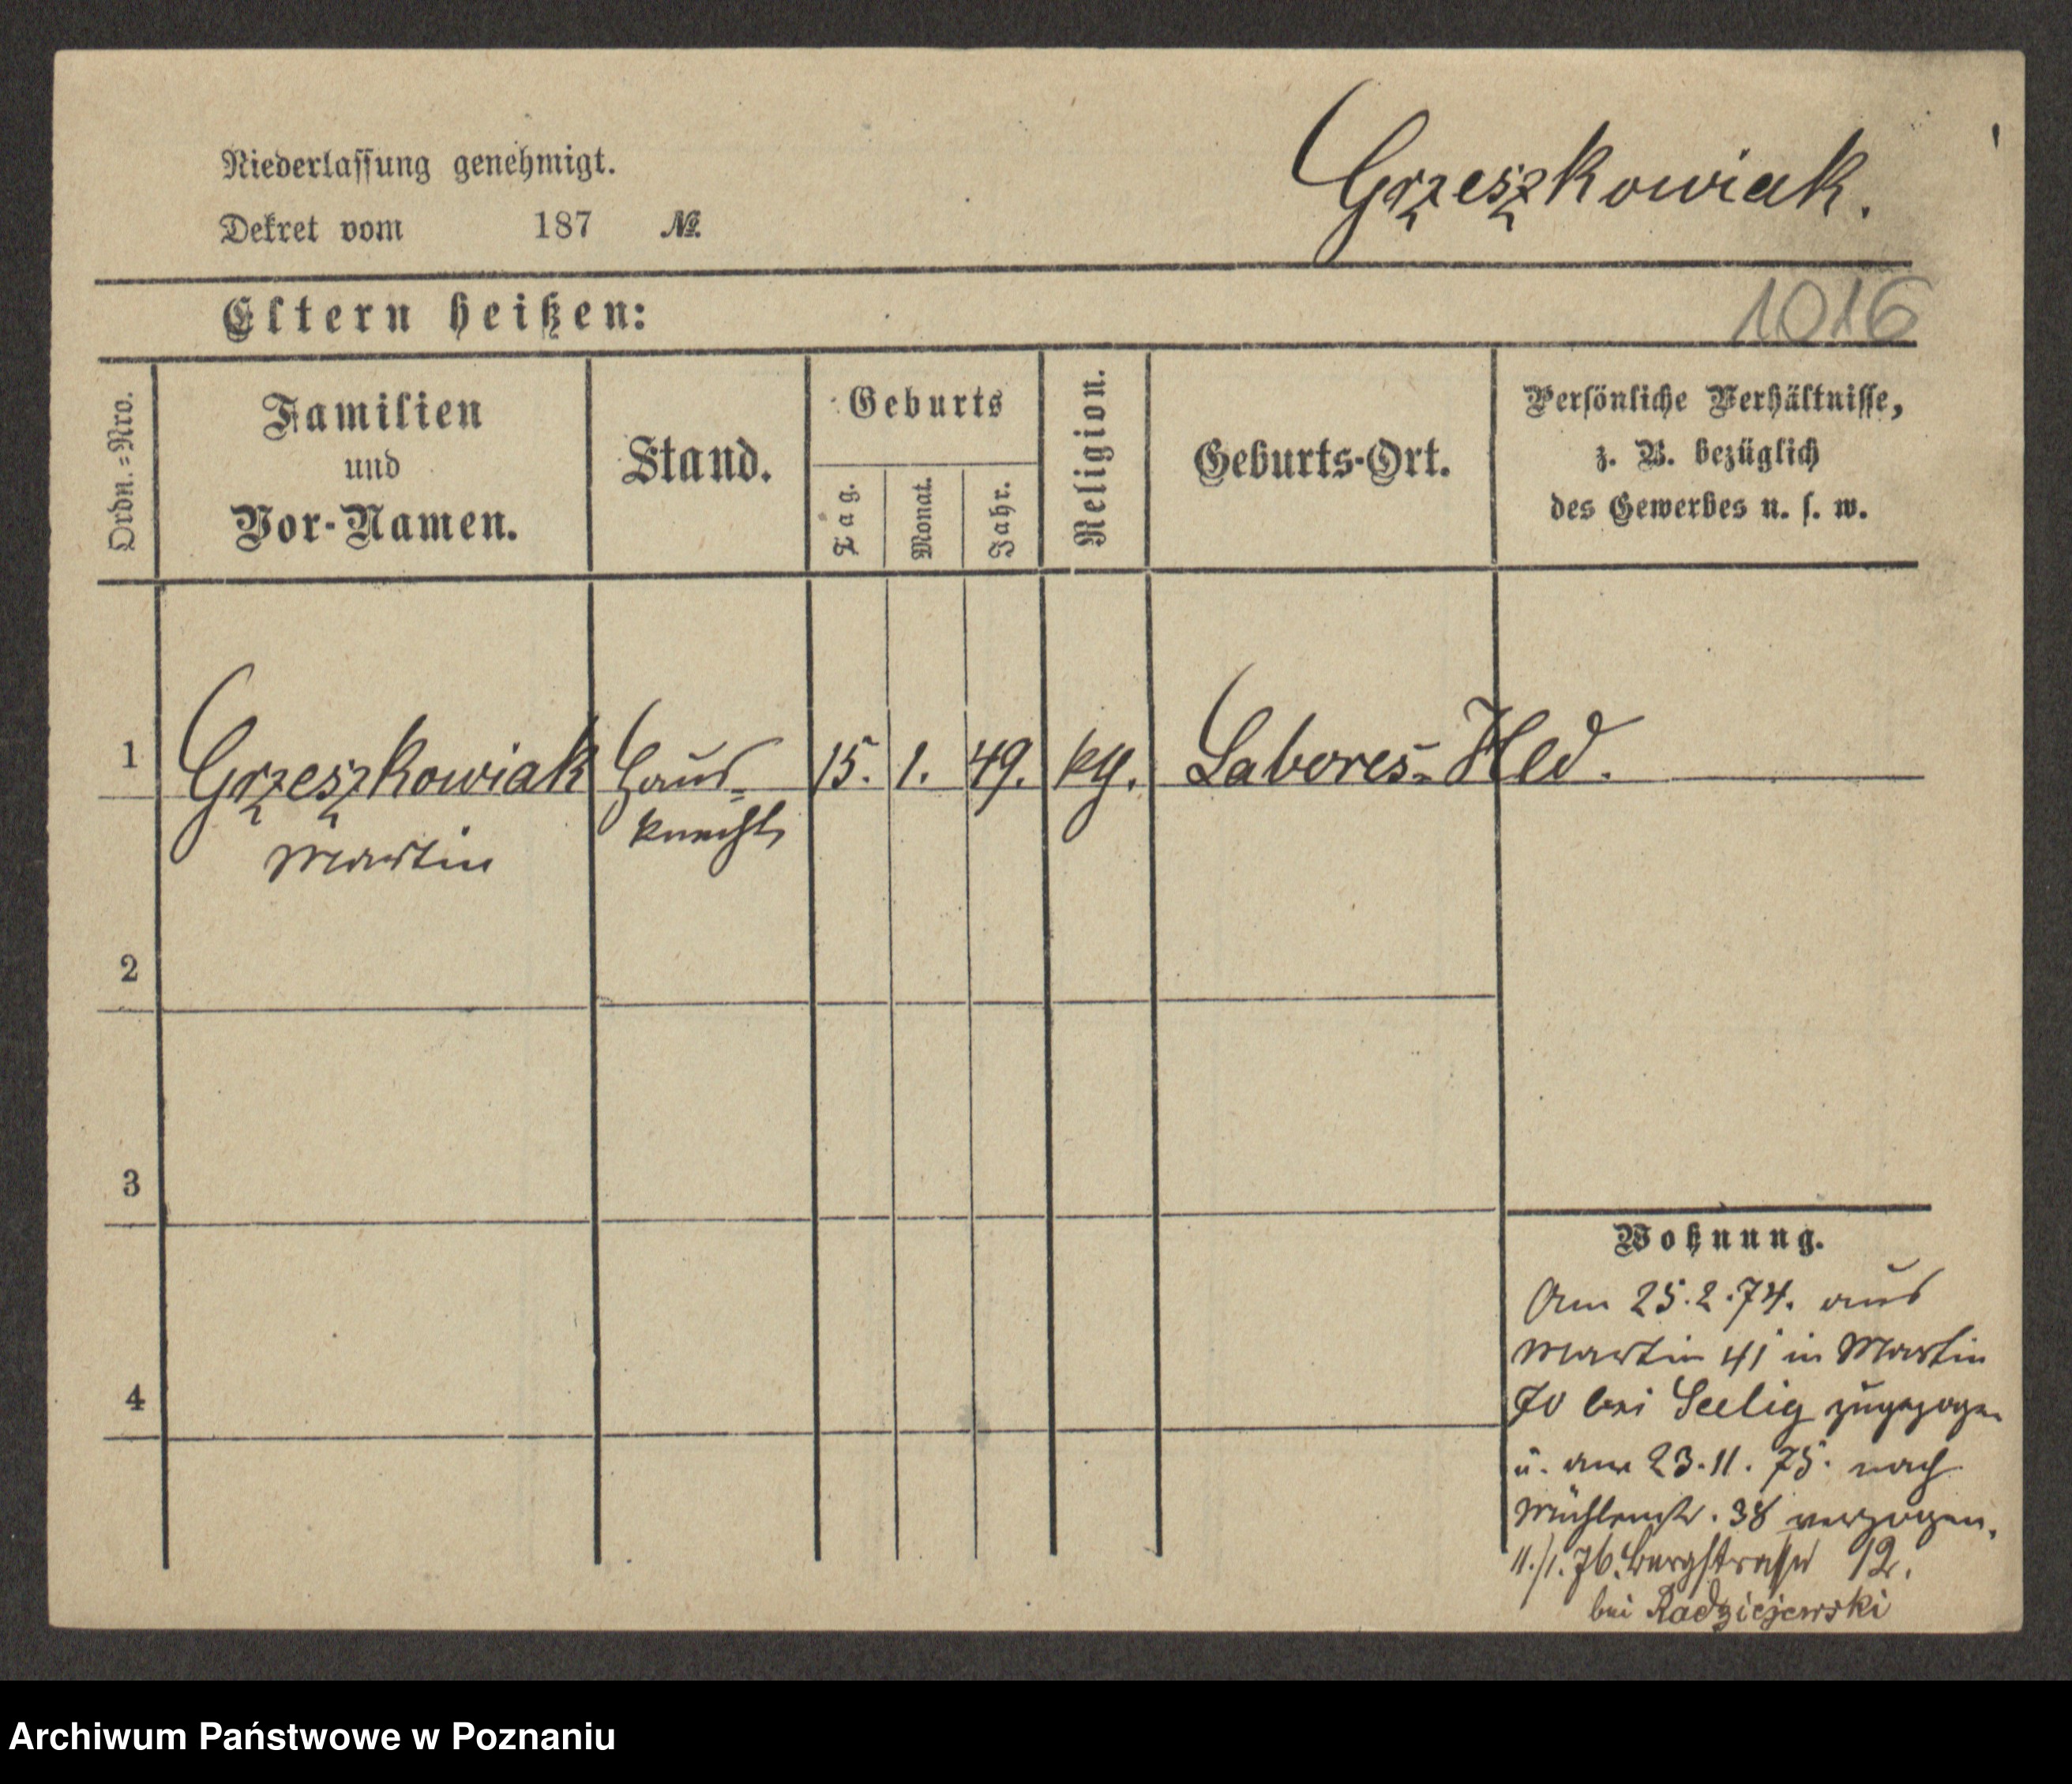 Niederlassung genehmigt.
Grzeszkowiak.
Dekret vom 187 №.
Eltern heißen:
1016
Ordn.=Nro.
Familien
und
Vor-Namen.
Stand.
Geburts
Tag.
Monat.
Jahr.
Religion.
Geburts-Ort.
Persönliche Verhältnisse,
z. B. bezüglich
des Gewerbes u. s. w.
1 Grzeszkowiak Haus= 15. 1. 49. kg. Labores=Hld.
Martin knecht
2
3
4
Wohnung.
Am 25.2.74. aus
Martin 41 in Martin
70 bei Seelig zugezogen
u. am 23.11.75. nach
Mühlenstr. 38 verzogen.
11./1.76. Bergstrasse 12.
bei Radziejewski
Archiwum Państwowe w Poznaniu